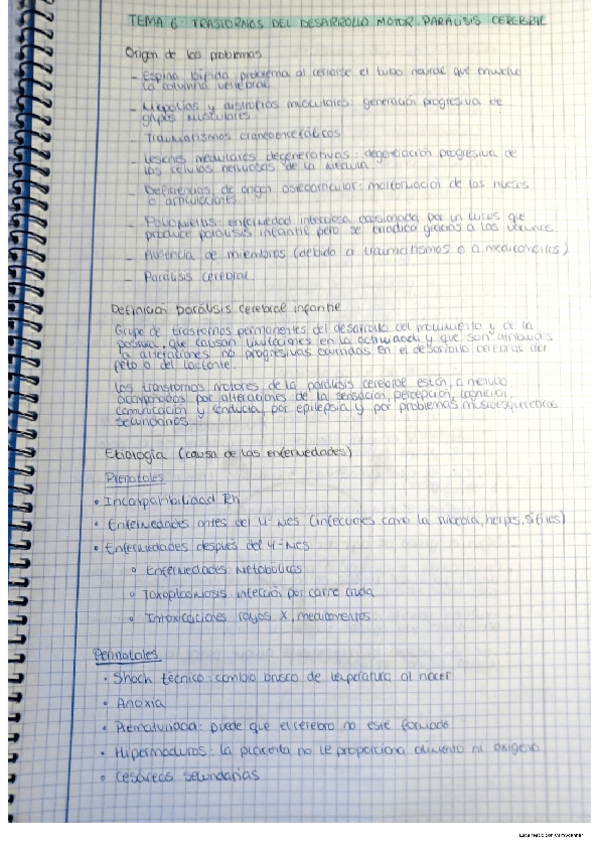 TEMA 6: TRASTORNOS DEL DESARROLLO MOTOR. PARÁLISIS CEREBRAL
Origen de los problemas
- Espina bífida: problema al cerrarse el tubo neural que envuelve
la columna vertebral.
- Miopatías y distrofias musculares: generación progresiva de
grupos musculares.
- Traumatismos craneoencefálicos
- Lesiones medulares degenerativas: degeneración progresiva de
las células nerviosas de la médula
- Deficiencias de origen osteoarticular: malformación de los huesos
o articulaciones
- Poliomielitis: enfermedad infecciosa ocasionada por un virus que
produce parálisis infantil pero se erradica gracias a las vacunas.
- Ausencia de miembros (debido a traumatismos o a medicamentos)
- Parálisis cerebral
Definición parálisis cerebral infantil
Grupo de trastornos permanentes del desarrollo del movimiento y de la
postura, que causan limitaciones en la actividad y que son atribuidas
a alteraciones no progresivas ocurridas en el desarrollo cerebral del
feto o del lactante.
Los trastornos motores de la parálisis cerebral están, a menudo
acompañados por alteraciones de la sensación, percepción, cognición,
comunicación y conducta, por epilepsia y por problemas musculoesqueléticos
secundarios.
Etiología (causa de las enfermedades)
Prenatales
• Incompatibilidad Rh
• Enfermedades antes del 4º mes (infecciones como la rubeola, herpes, sífilis)
• Enfermedades después del 4º mes
o Enfermedades metabólicas
o Toxoplasmosis infección por carne cruda
o Intoxicaciones rayos X, medicamentos
Perinatales
• Shock térmico: cambio brusco de temperatura al nacer
• Anoxia
• Prematuridad: puede que el cerebro no esté formado
• Hipermaduros: la placenta no le proporciona alimento ni oxígeno
• Cesáreas secundarias